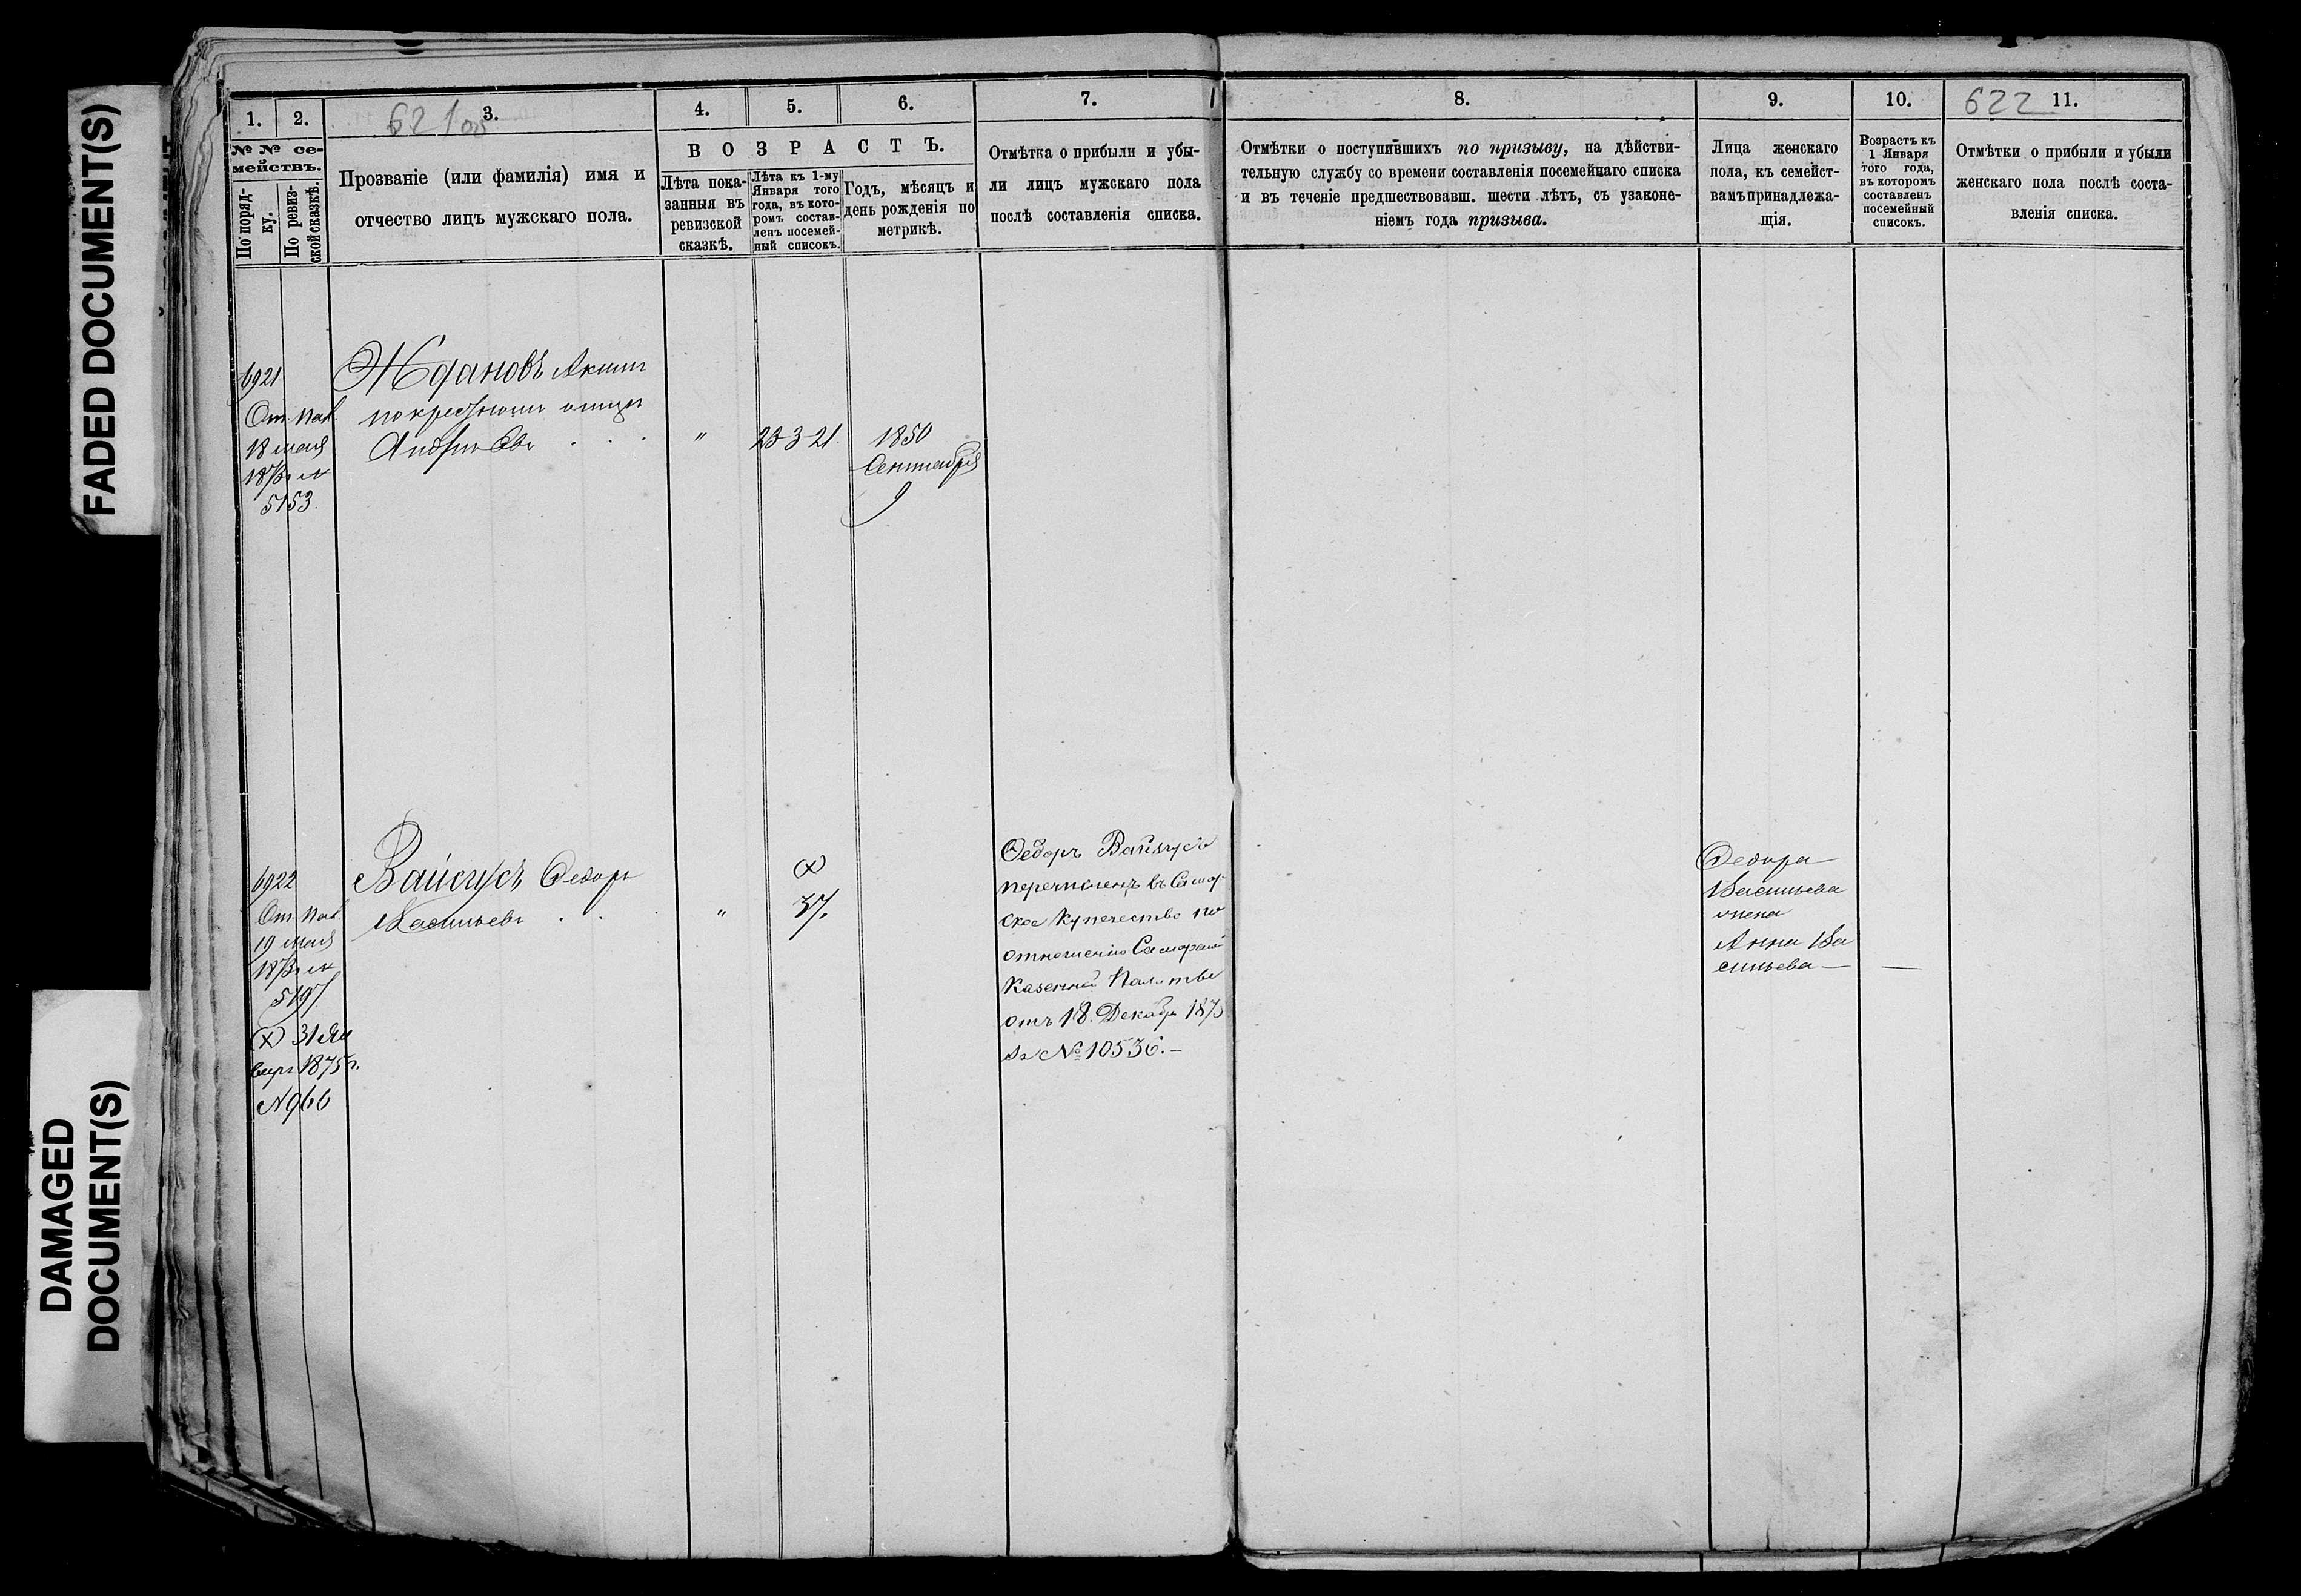 FADED DOCUMENT(S)
DAMAGED
DOCUMENT(S)
1.
2.
3.
4.
5.
6.
7.
8.
9.
10.
11.
621об
622
№ № се-
мействъ.
По поряд-
ку.
По ревиз-
ской сказкѣ.
Прозваніе (или фамилія) имя и
отчество лицъ мужскаго пола.
ВОЗРАСТЪ.
Лѣта пока-
занныя въ
ревизской
сказкѣ.
Лѣта къ 1-му
Января того
года, въ кото-
ромъ состав-
ленъ посемей-
ный списокъ.
Годъ, мѣсяцъ и
день рожденія по
метрикѣ.
Отмѣтка о прибыли и убы-
ли лицъ мужскаго пола
послѣ составленія списка.
Отмѣтки о поступившихъ по призыву, на дѣйстви-
тельную службу со времени составленія посемейнаго списка
и въ теченіе предшествовавш. шести лѣтъ, съ узаконе-
ніемъ года призыва.
Лица женскаго
пола, къ семейст-
вамъ принадлежа-
щія.
Возрастъ къ
1 Января
того года,
въ которомъ
составленъ
посемейный
списокъ.
Отмѣтки о прибыли и убыли
женскаго пола послѣ соста-
вленія списка.
6921
18 мая
5153.
Ждановъ Акимъ
"
23-3-21.
1850
Сентября
9
6922
19 мая
5197
31 Ян
варя 1875 г.
№ 966
Вайсусъ Федоръ
Васильевъ
"
37.
Федоръ Вайзусъ
перечисленъ въ Самар-
ское купечество по
отношенію Самарской
Казенной Палаты
отъ 18 Декабр 1875
за № 10536.-
Федора
Васильева
жена
Анна Ва
сильева —
—